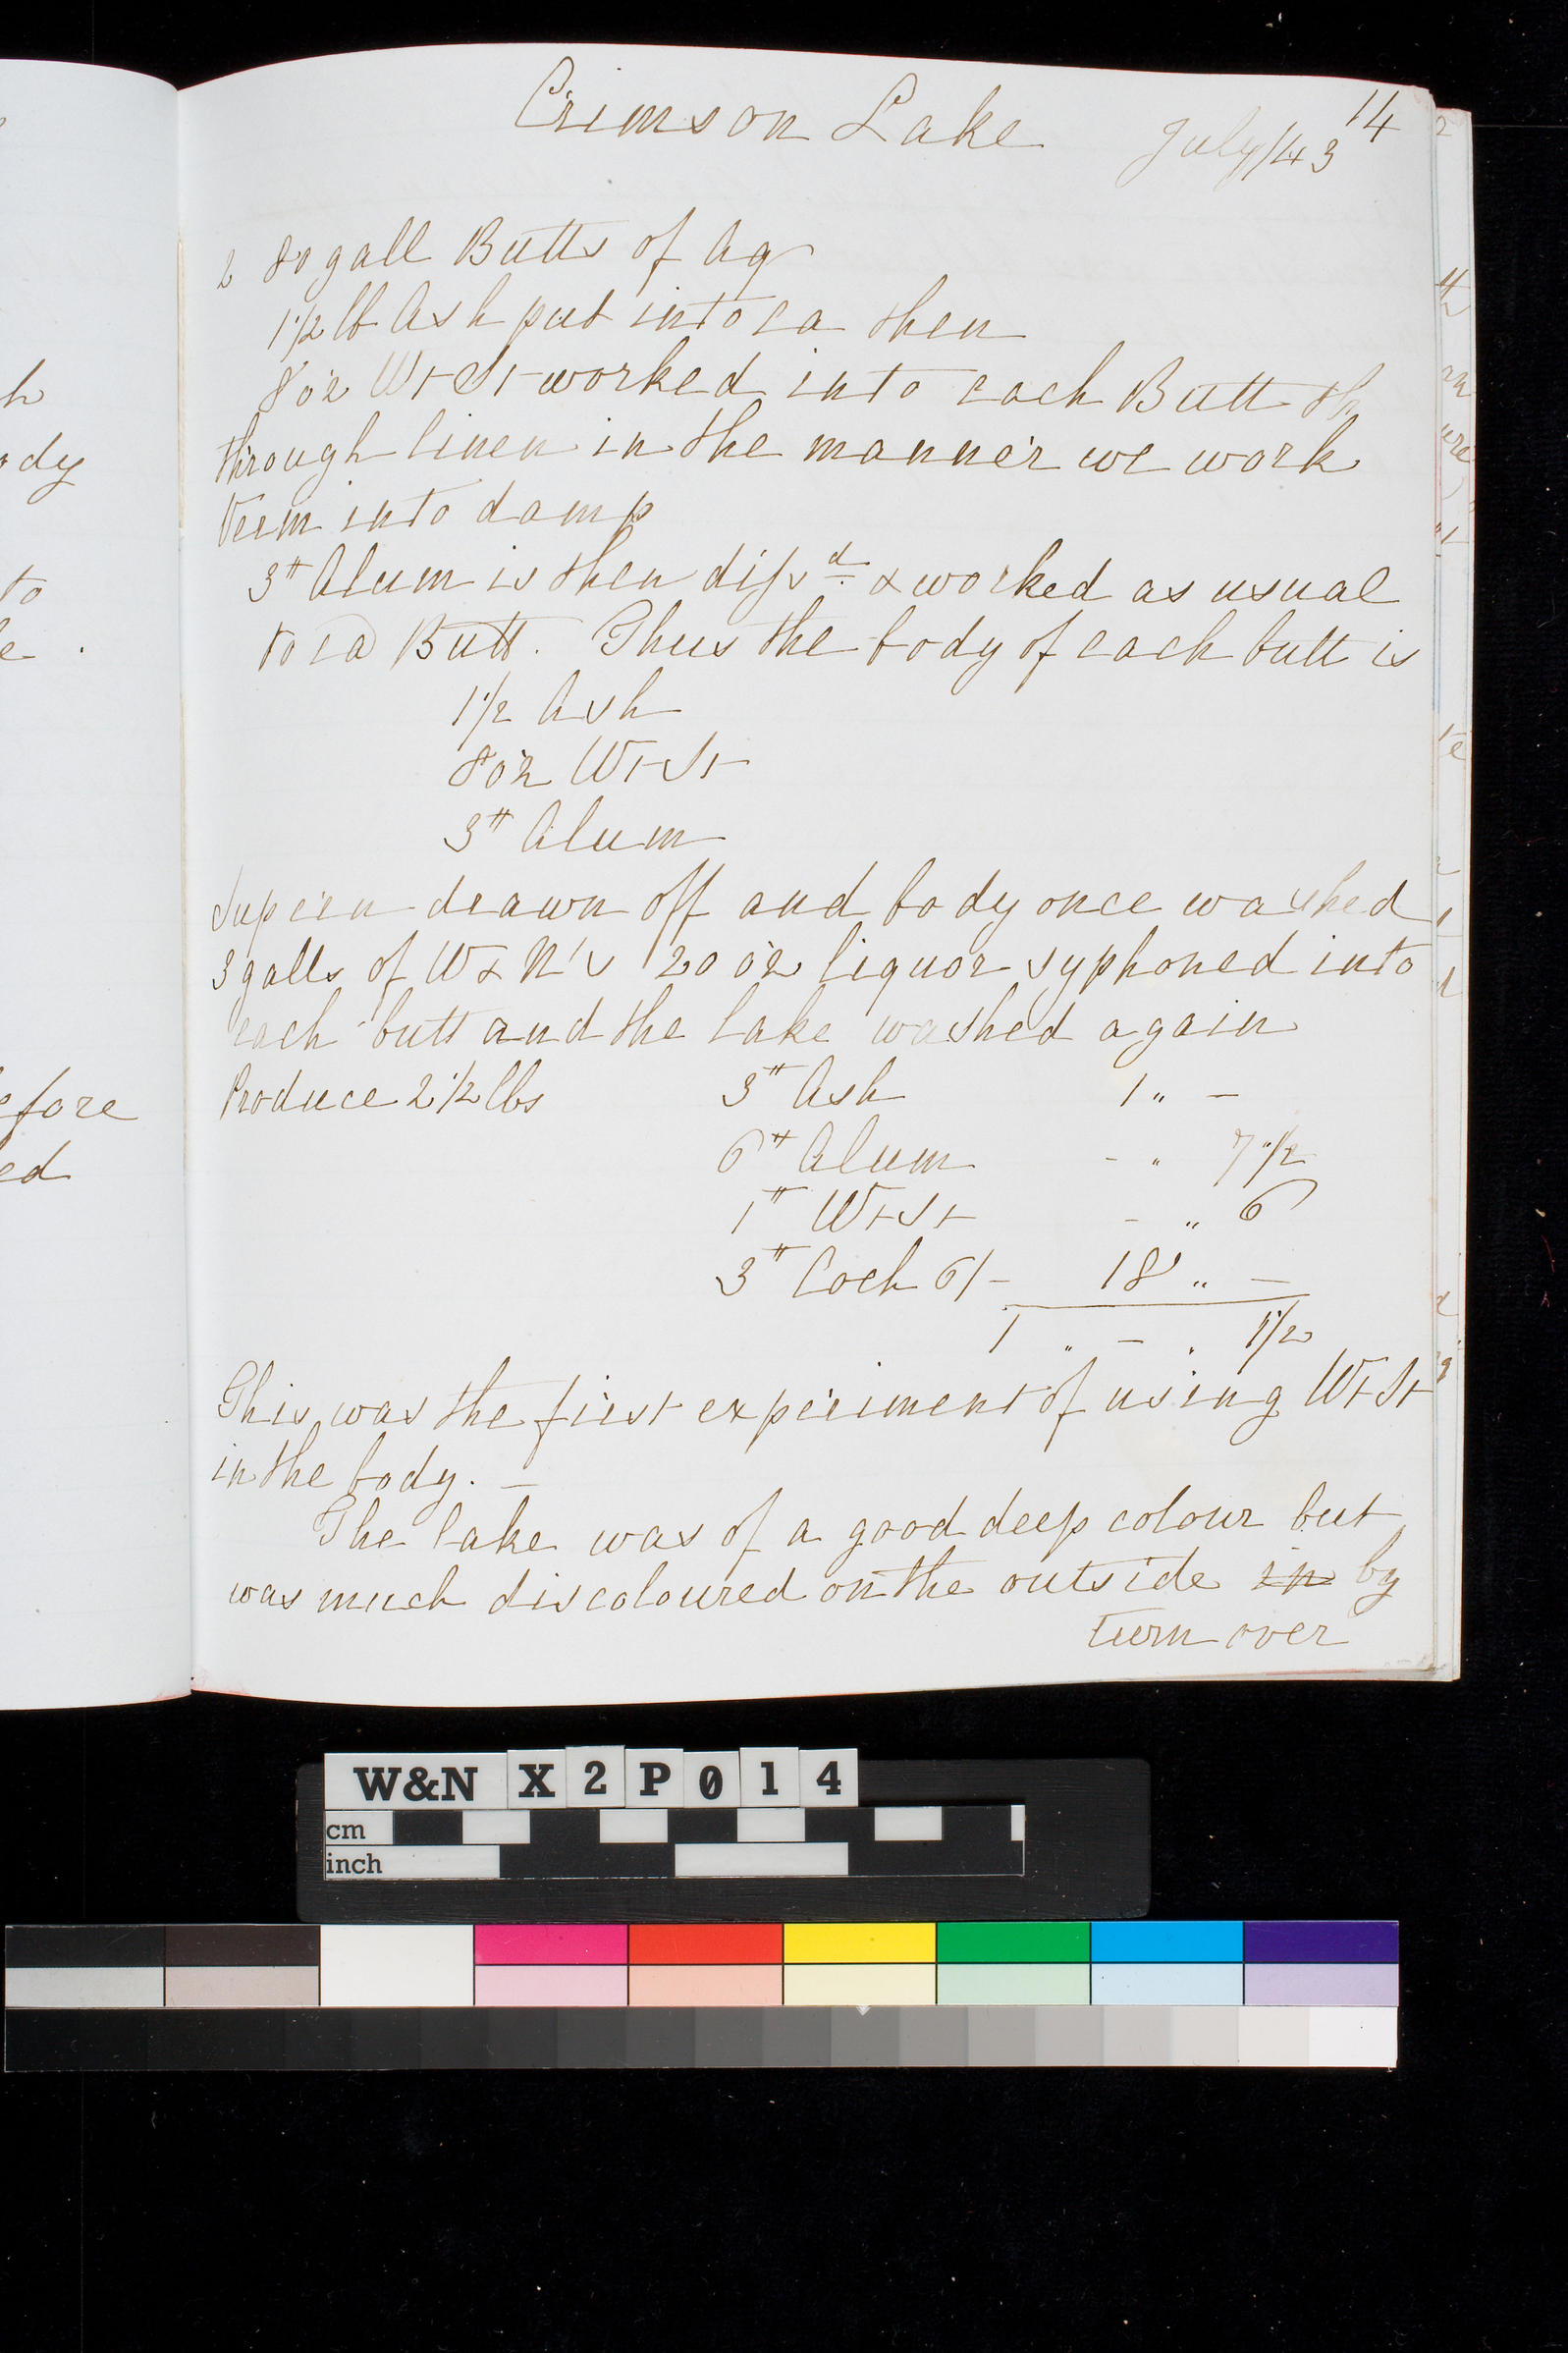 Crimson Lake
14
July/43
2 80 gall Butts of Aq
1 1/2 lb Ash put into ea then
8 oz Wt St worked into each Butt th
through linen in the manner we work
Verm into damp
3# Alum is then dissd & worked as usual
to ea Butt. Thus the body of each butt is
1 1/2 Ash
8 oz Wt St
3# Alum
Supern drawn off and body once washed
3 galls of W & N's 20 oz liquor syphoned into
each butt and the lake washed again
Produce 2 1/2 lbs 3# Ash 1 " -
6# Alum - " 7 1/2
1# Wt St - " 6
3# Coch 6/- 18 " -
1 " - " 1 1/2
This was the first experiment of using Wt St
in the body. -
The lake was of a good deep colour but
was much discoloured on the outside in by
turn over
h
ody
to
e .
efore
ed
W&N X2P014
cm
inch